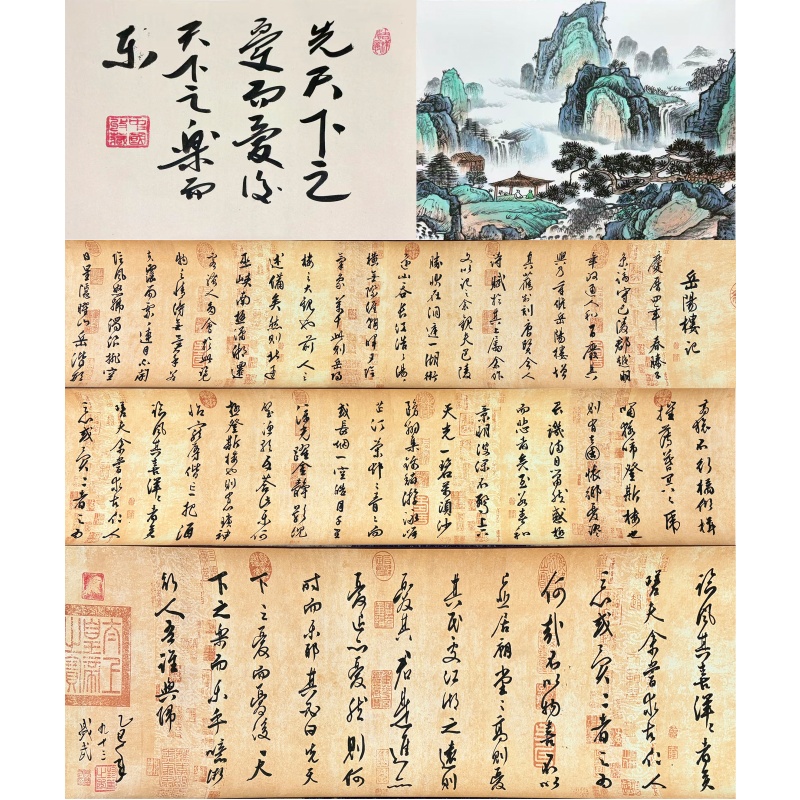 先天下之
憂而憂後
天下之樂而
乐
岳陽樓記
慶曆四年春滕子
京謫守巴陵郡越明
年政通人和百廢具
興乃重修岳陽樓增
其舊制刻唐賢今人
詩賦於其上屬余作
文以記之余觀夫巴陵
勝狀在洞庭一湖銜
遠山吞長江浩浩湯湯
橫無際涯朝暉夕陰
氣象萬千此則岳陽
樓之大觀也前人之
述備矣然則北通
巫峽南極瀟湘遷
客騷人多會於此覽
物之情得無異乎若
夫霪雨霏霏連月不開
陰風怒號濁浪排空
日星隱曜山岳潛形
商旅不行檣傾楫
摧薄暮冥冥虎
嘯猿啼登斯樓也
則有去國懷鄉憂讒
畏譏滿目蕭然感極
而悲者矣至若春和
景明波瀾不驚上下
天光一碧萬頃沙
鷗翔集錦鱗游泳岸
芷汀蘭郁郁青青而
或長煙一空皓月千里
浮光躍金靜影沉
璧漁歌互答此樂何
極登斯樓也則有心曠神
怡寵辱偕忘把酒
臨風其喜洋洋者矣
嗟夫余嘗求古仁人
之心或異二者之為
臨風其喜洋洋者矣
嗟夫余嘗求古仁人
之心或異二者之為
何哉不以物喜不以
己悲居廟堂之高則憂
其民處江湖之遠則
憂其君是進亦
憂退亦憂然則何
時而樂耶其必曰先天
下之憂而憂後天
下之樂而樂乎噫微
斯人吾誰與歸
乙巳年
九十二
盛武
太上皇帝之寶